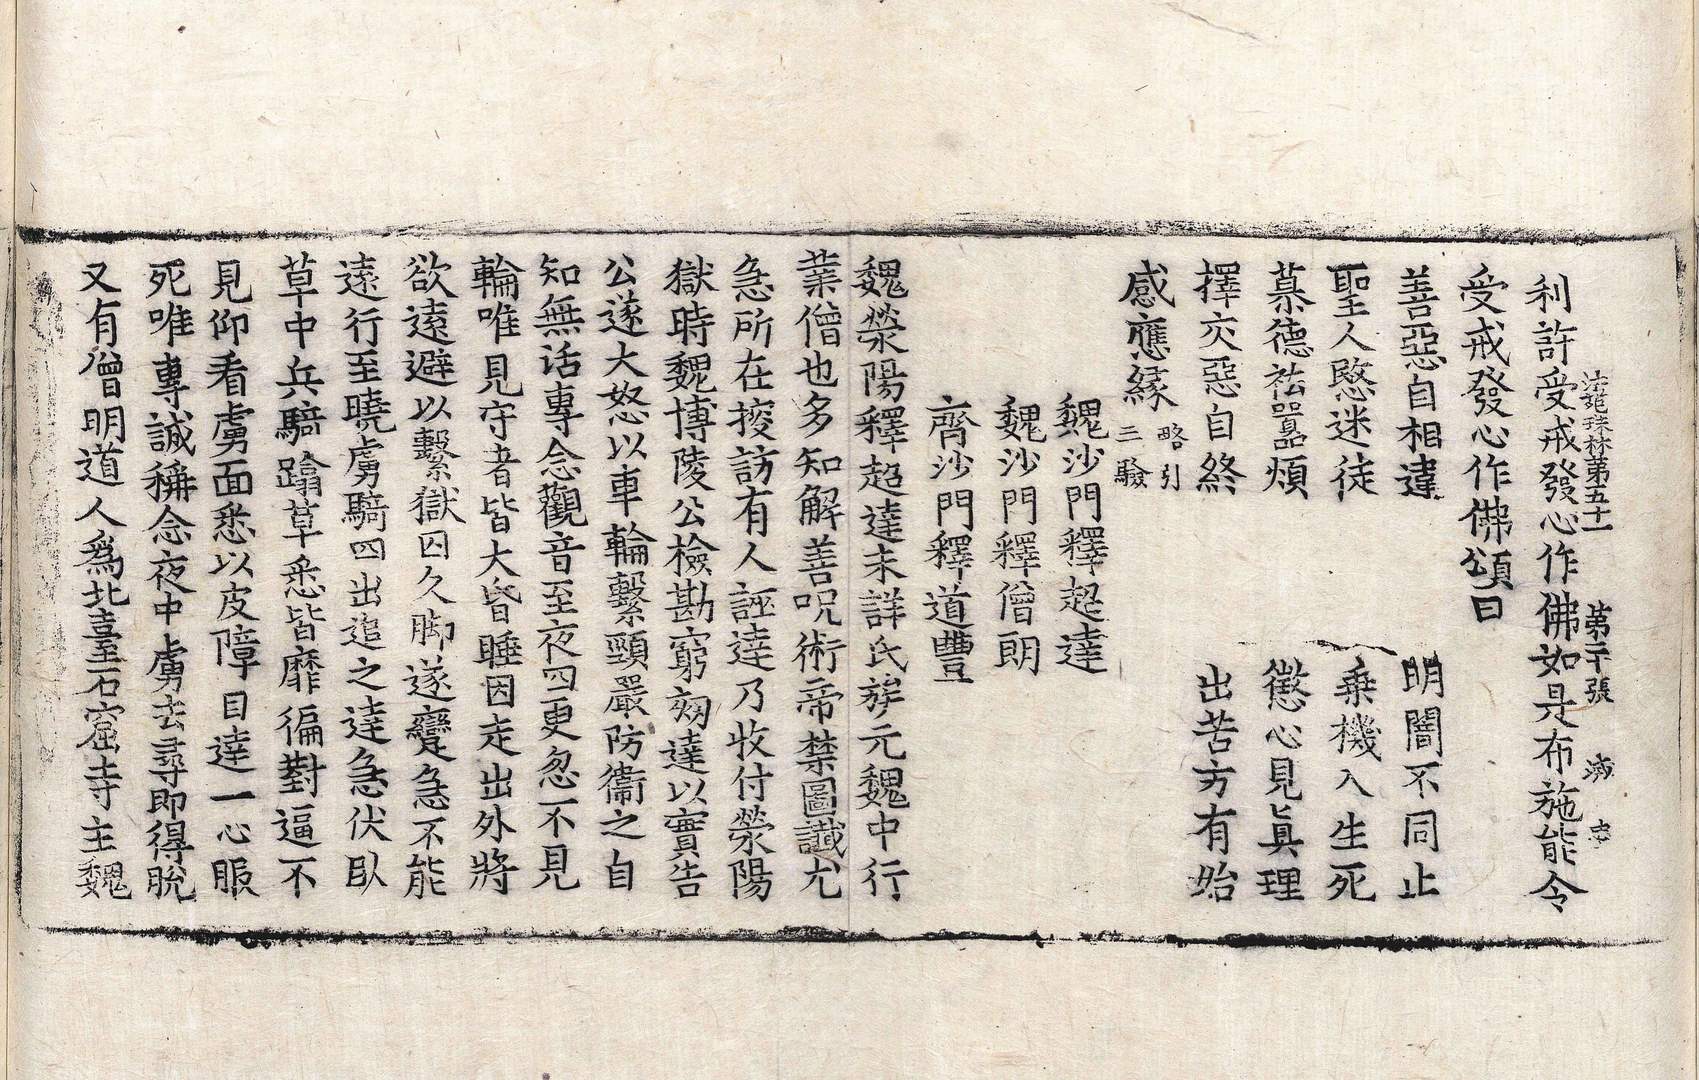 利許受戒發心作佛如是布施能令
法苑珠林第五十一 第二十張
受戒發心作佛頌曰
善惡自相違 明闇不同止
聖人愍迷徒 乗機入生死
慕德祛嚚煩 懲心見眞理
擇交惡自終 出苦方有始
感應緣 略引三驗
魏沙門釋超達
魏沙門釋僧朗
齊沙門釋道豐
魏滎陽釋超達未詳氏族元魏中行
業僧也多知解善呪術帝禁圖讖尤
急所在搜訪有人誣達乃收付滎陽
獄時魏博陵公檢勘窮劾達以實告
公遂大怒以車輪繫頸嚴防衞之自
知無活專念觀音至夜四更忽不見
輪唯見守者皆大昏睡因走出外將
欲遠避以繫獄囚久脚遂攣急不能
遠行至曉虜騎四出追之達急伏臥
草中兵騎蹹草悉皆靡徧對逼不
見仰看虜面悉以皮障目達一心服
死唯專誠稱念夜中虜去尋即得脫
又有僧明道人爲北臺石窟寺主魏